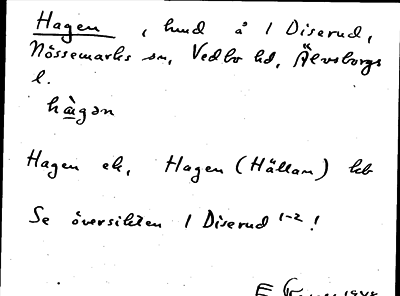 Hagen, hmd å 1 Diserud,
Nössemarks sn, Vedbo hd, Älvsborgs
l.
hàgən
Hagen ek, Hagen (Hällan) kb
Se översikten 1 Diserud 1-2!
E